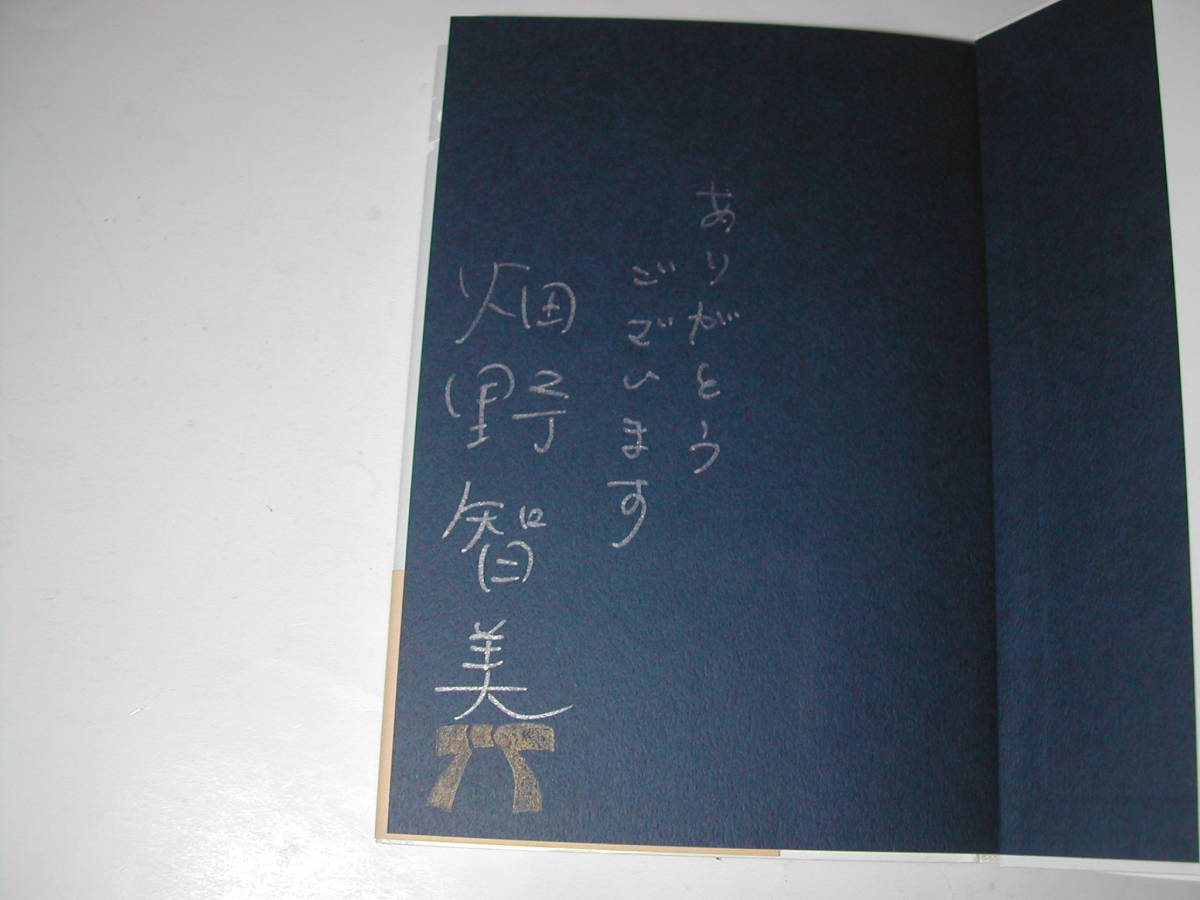 ありがとう
ございます
畑野智美